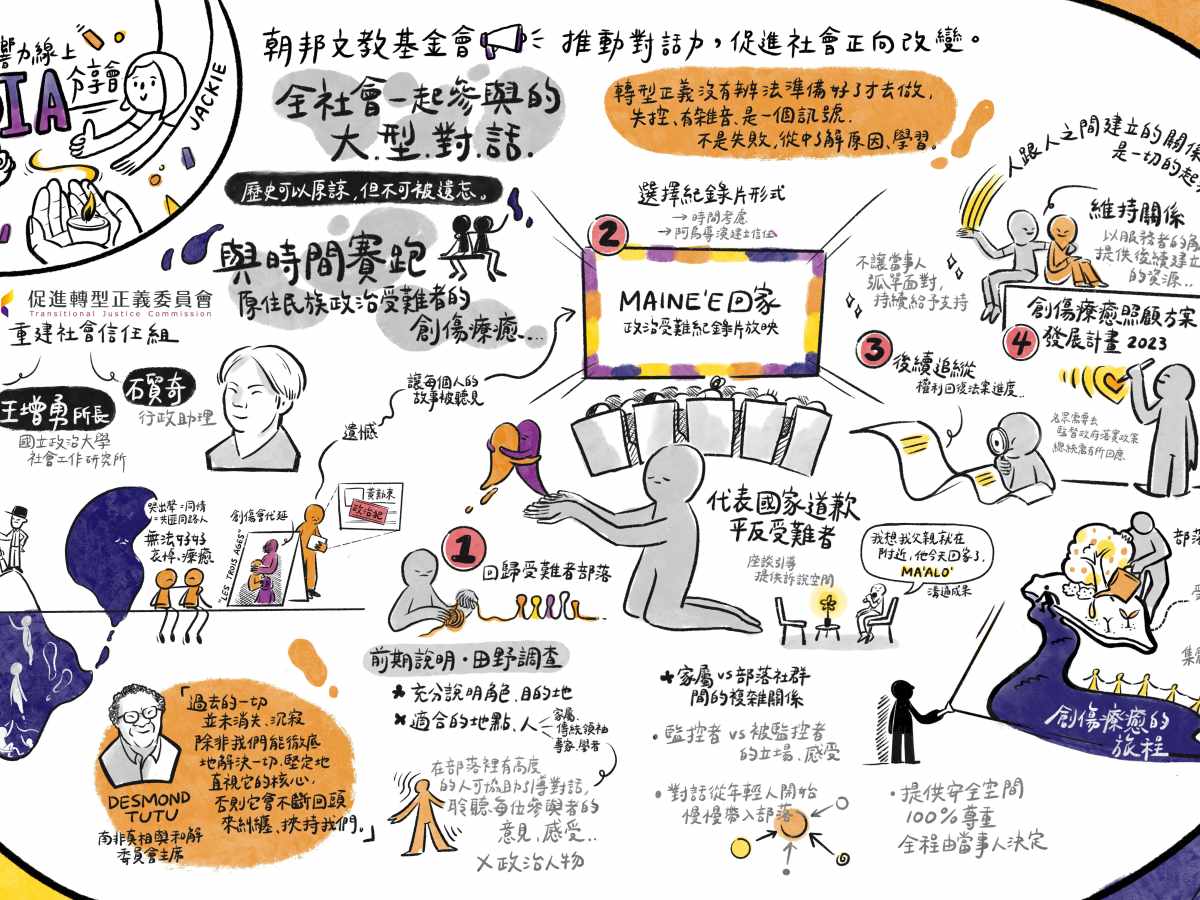 響力線上
IA
分享會
JACKIE
朝邦文教基金會
推動對話力，促進社會正向改變。
全社會一起參與的
大.型.對.話.
歷史可以原諒，但不可被遺忘。
與時間賽跑
原住民族政治受難者的
創傷療癒...
轉型正義沒有辦法準備好了才去做，
失控、有雜音、是一個訊號.
不是失敗，從中了解原因、學習。
促進轉型正義委員會
Transitional Justice Commission
重建社會信任組
王增勇所長
國立政治大學
社會工作研究所
石貿奇
行政助理
哭出聲=同情
=共匪同路人
無法好好
哀悼、療癒
創傷會代延
"LES TROIS AGES"
遺憾
政治犯
讓每個人的
故事被聽見
1
回歸受難者部落
前期說明・田野調查
充分說明角色、目的地
適合的地點、人
家屬、
傳統領袖
專家、學者
在部落裡有高度
的人可協助引導對話，
聆聽每位參與者的
意見、感受...
X政治人物
「過去的一切
並未消失、沉寂
除非我們能徹底
地解決一切、堅定地
直視它的核心，
否則它會不斷回頭
來糾纏、挾持我們。」
DESMOND
TUTU
南非真相與和解
委員會主席
2
選擇紀錄片形式
→ 時間考慮
MAINE'E回家
政治受難紀錄片放映
代表國家道歉
平反受難者
座談引導
提供訴說空間
我想我父親就在
附近，他今天回家了.
MA'ALO'
溝通成果
家屬vs部落社群
間的複雜關係
・監控者 vs 被監控者
的立場、感受
・對話從年輕人開始
慢慢帶入部落
・提供安全空間
100%尊重
全程由當事人決定
不讓當事人
孤單面對，
持續給予支持
3
後續追縱
權利回復法案進度...
人跟人之間建立的關係
是一切的起
維持關係
以服務者的角
提供後續建立
的資源...
4
創傷療癒照顧方案
發展計畫 2023
監督政府落實政策
總統需有所回應
部落
受
集
創傷療癒的
旅程